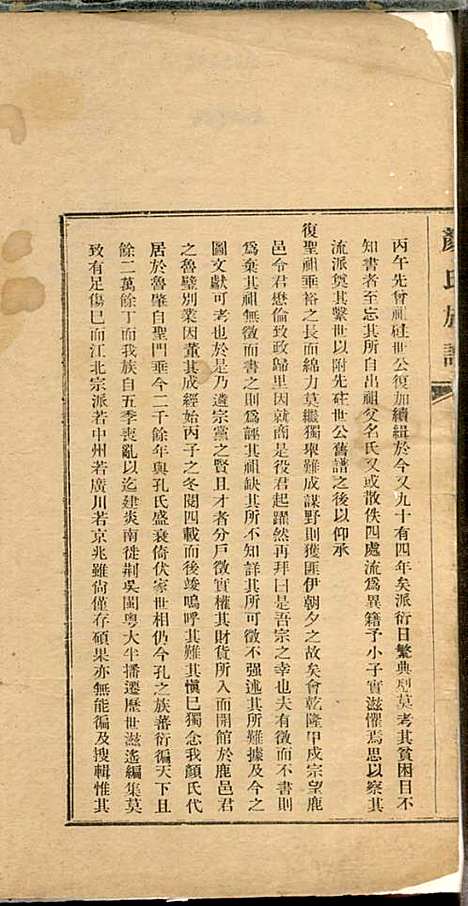 顏氏族譜
丙午先曾祖砫世公復加續緝於今又九十有四年矣派衍日繁典型莫考其貧困目不
知書者至忘其所自出祖父名氏又或散佚四處流爲異籍予小子實滋懼焉思以察其
流派奠其繫世以附先砫世公舊譜之後以仰承
復聖祖垂裕之長而綿力莫繼獨舉難成謀野則獲匪伊朝夕之故矣會乾隆甲戍宗望鹿
邑令君懋倫致政歸里因就商是役君起躍然再拜曰是吾宗之幸也夫有徵而不書則
爲棄其祖無徵而書之則爲誣其祖缺其所不知詳其所可徵不强述其所難據及今之
圖文獻可考也於是乃遴宗黨之賢且才者分戶徵實權其財貨所入而開館於鹿邑君
之魯壁別業因董其成經始丙子之冬閱四載而後竣嗚呼其難其愼巳獨念我顏氏代
居於魯肇自聖門垂今二千餘年與孔氏盛衰倚伏家世相仍今孔之族蕃衍徧天下且
餘二萬餘丁而我族自五季喪亂以迄建炎南徙荆吳閩粤大半播遷歷世滋遙編集莫
致有足傷巳而江北宗派若中州若廣川若京兆雖尙僅存碩果亦無能徧及搜輯惟其